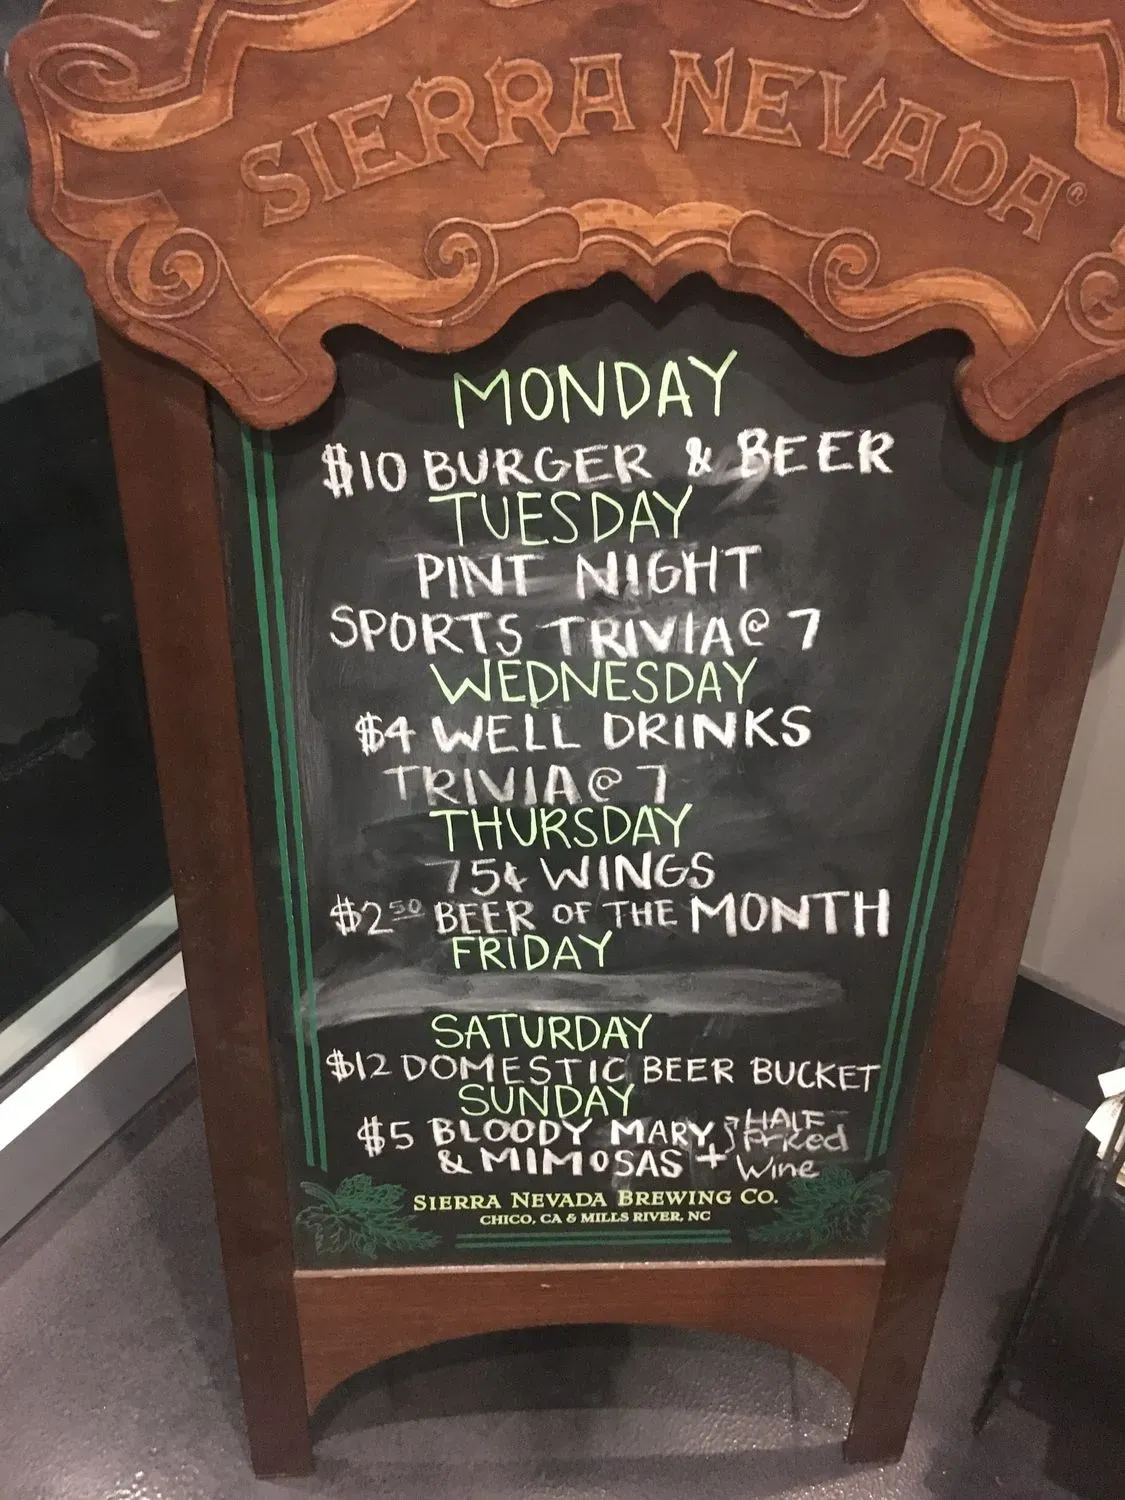 SIERRA NEVADA®
MONDAY
$10 BURGER & BEER
TUESDAY
PINT NIGHT
SPORTS TRIVIA @ 7
WEDNESDAY
$4 WELL DRINKS
TRIVIA @ 7
THURSDAY
75¢ WINGS
$2.50 BEER OF THE MONTH
FRIDAY
SATURDAY
$12 DOMESTIC BEER BUCKET
SUNDAY
$5 BLOODY MARY
& MIMOSAS +
HALF
PRiced
Wine
SIERRA NEVADA BREWING CO.
CHICO, CA & MILLS RIVER, NC